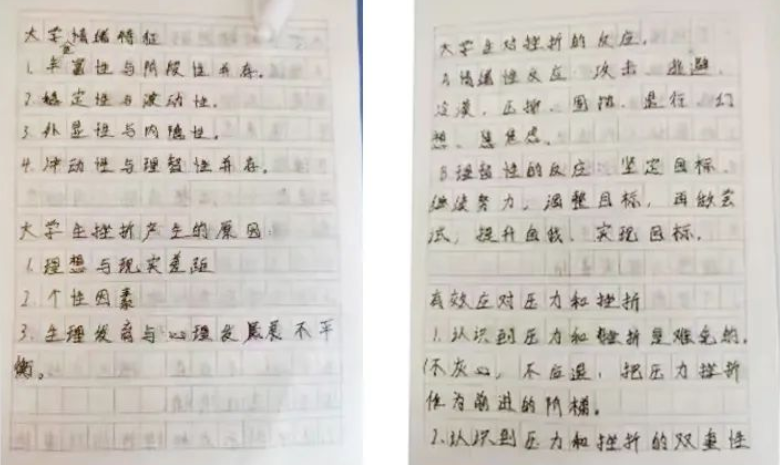 大学生情绪特征
1.丰富性与阶段性并存。
2.稳定性与波动性。
3.外显性与内隐性。
4.冲动性与理智性并存。
大学生挫折产生的原因:
1.理想与现实差距
2.个性因素
3.生理发育与心理发展不平
衡。
大学生对挫折的反应。
A情绪性反应 攻击、逃避、
冷漠、压抑、固执、退行、幻
想、
B理智性的反应:坚定目标、
继续努力,调整目标,再做尝
试,提升自我、实现目标。
有效应对压力和挫折
1.认识到压力和挫折是难免的。
不灰心,不后退,把压力挫折
作为前进的阶梯。
2.认识到压力和挫折的双重性